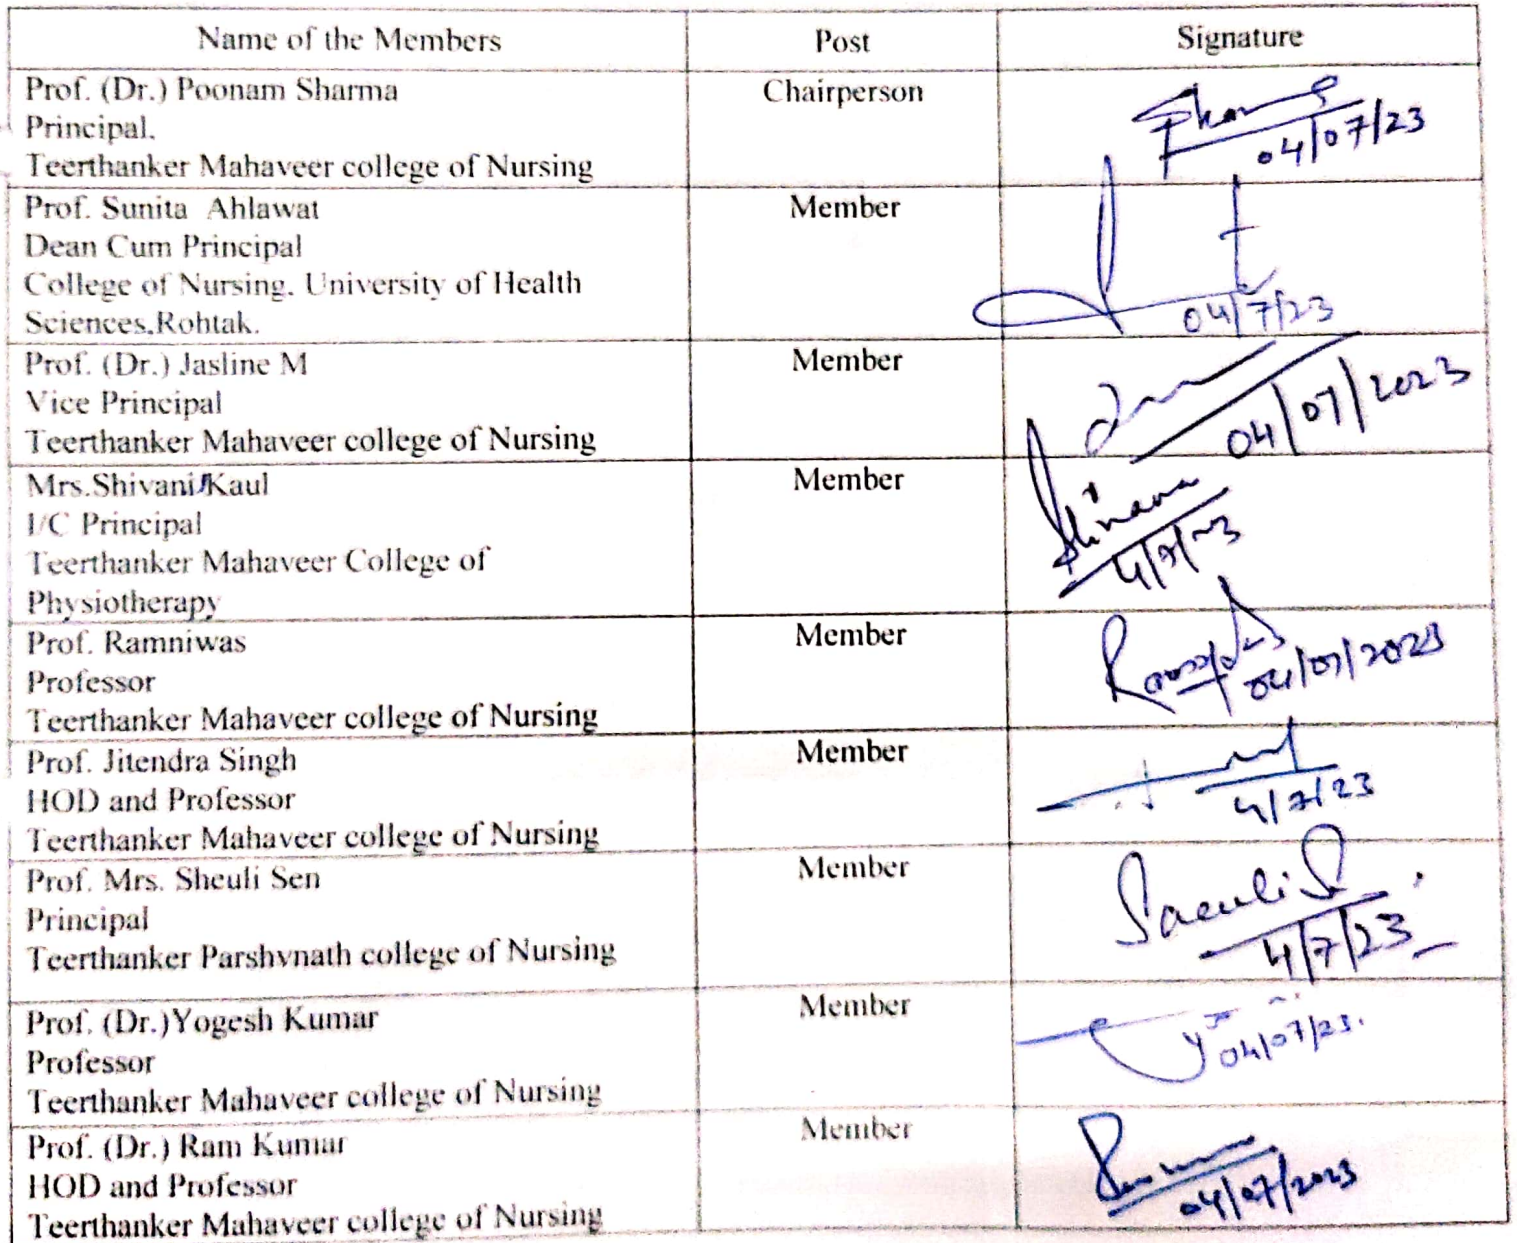 Name of the Members Post Signature
Prof. (Dr.) Poonam Sharma Chairperson
Principal,
Teerthanker Mahaveer college of Nursing
04/07/23
Prof. Sunita Ahlawat Member
Dean Cum Principal
College of Nursing, University of Health
Sciences,Rohtak.
04/7/23
Prof. (Dr.) Jasline M Member
Vice Principal
Teerthanker Mahaveer college of Nursing
04/07/2023
Mrs.Shivani Kaul Member
I/C Principal
Teerthanker Mahaveer College of
Physiotherapy
4/7/23
Prof. Ramniwas Member
Professor
Teerthanker Mahaveer college of Nursing
04/07/2023
Prof. Jitendra Singh Member
HOD and Professor
Teerthanker Mahaveer college of Nursing
4/7/23
Prof. Mrs. Sheuli Sen Member
Principal
Teerthanker Parshvnath college of Nursing
4/7/23
Prof. (Dr.)Yogesh Kumar Member
Professor
Teerthanker Mahaveer college of Nursing
04/07/23.
Prof. (Dr.) Ram Kumar Member
HOD and Professor
Teerthanker Mahaveer college of Nursing
04/07/2023